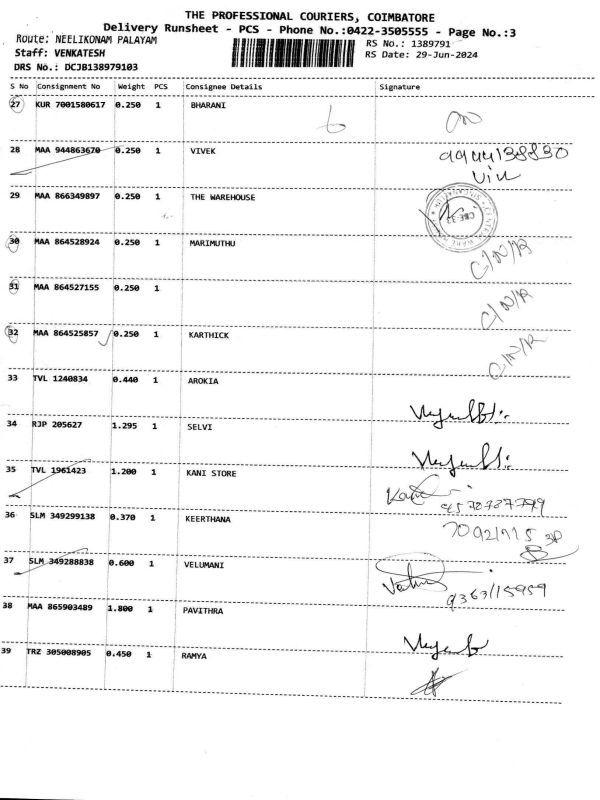 THE PROFESSIONAL COURIERS, COIMBATORE
Delivery Runsheet - PCS - Phone No.:0422-3505555 - Page No.:3
Route: NEELIKONAM PALAYAM
RS No.: 1389791
Staff: VENKATESH
RS Date: 29-Jun-2024
DRS No.: DCJB138979103
S No Consignment No Weight PCS Consignee Details Signature
27 KUR 7001580617 0.250 1 BHARANI
28 MAA 944863670 0.250 1 VIVEK 9944138830
29 MAA 866349897 0.250 1 THE WAREHOUSE
30 MAA 864528924 0.250 1 MARIMUTHU C/N/R
31 MAA 864527155 0.250 1 C/N/R
32 MAA 864525857 0.250 1 KARTHICK C/N/R
33 TVL 1240834 0.440 1 AROKIA
34 RJP 205627 1.295 1 SELVI
35 TVL 1961423 1.200 1 KANI STORE
36 SLM 349299138 0.370 1 KEERTHANA
37 SLM 349288838 0.600 1 VELUMANI
9363115959
38 MAA 865903489 1.800 1 PAVITHRA
39 TRZ 305008905 0.450 1 RAMYA